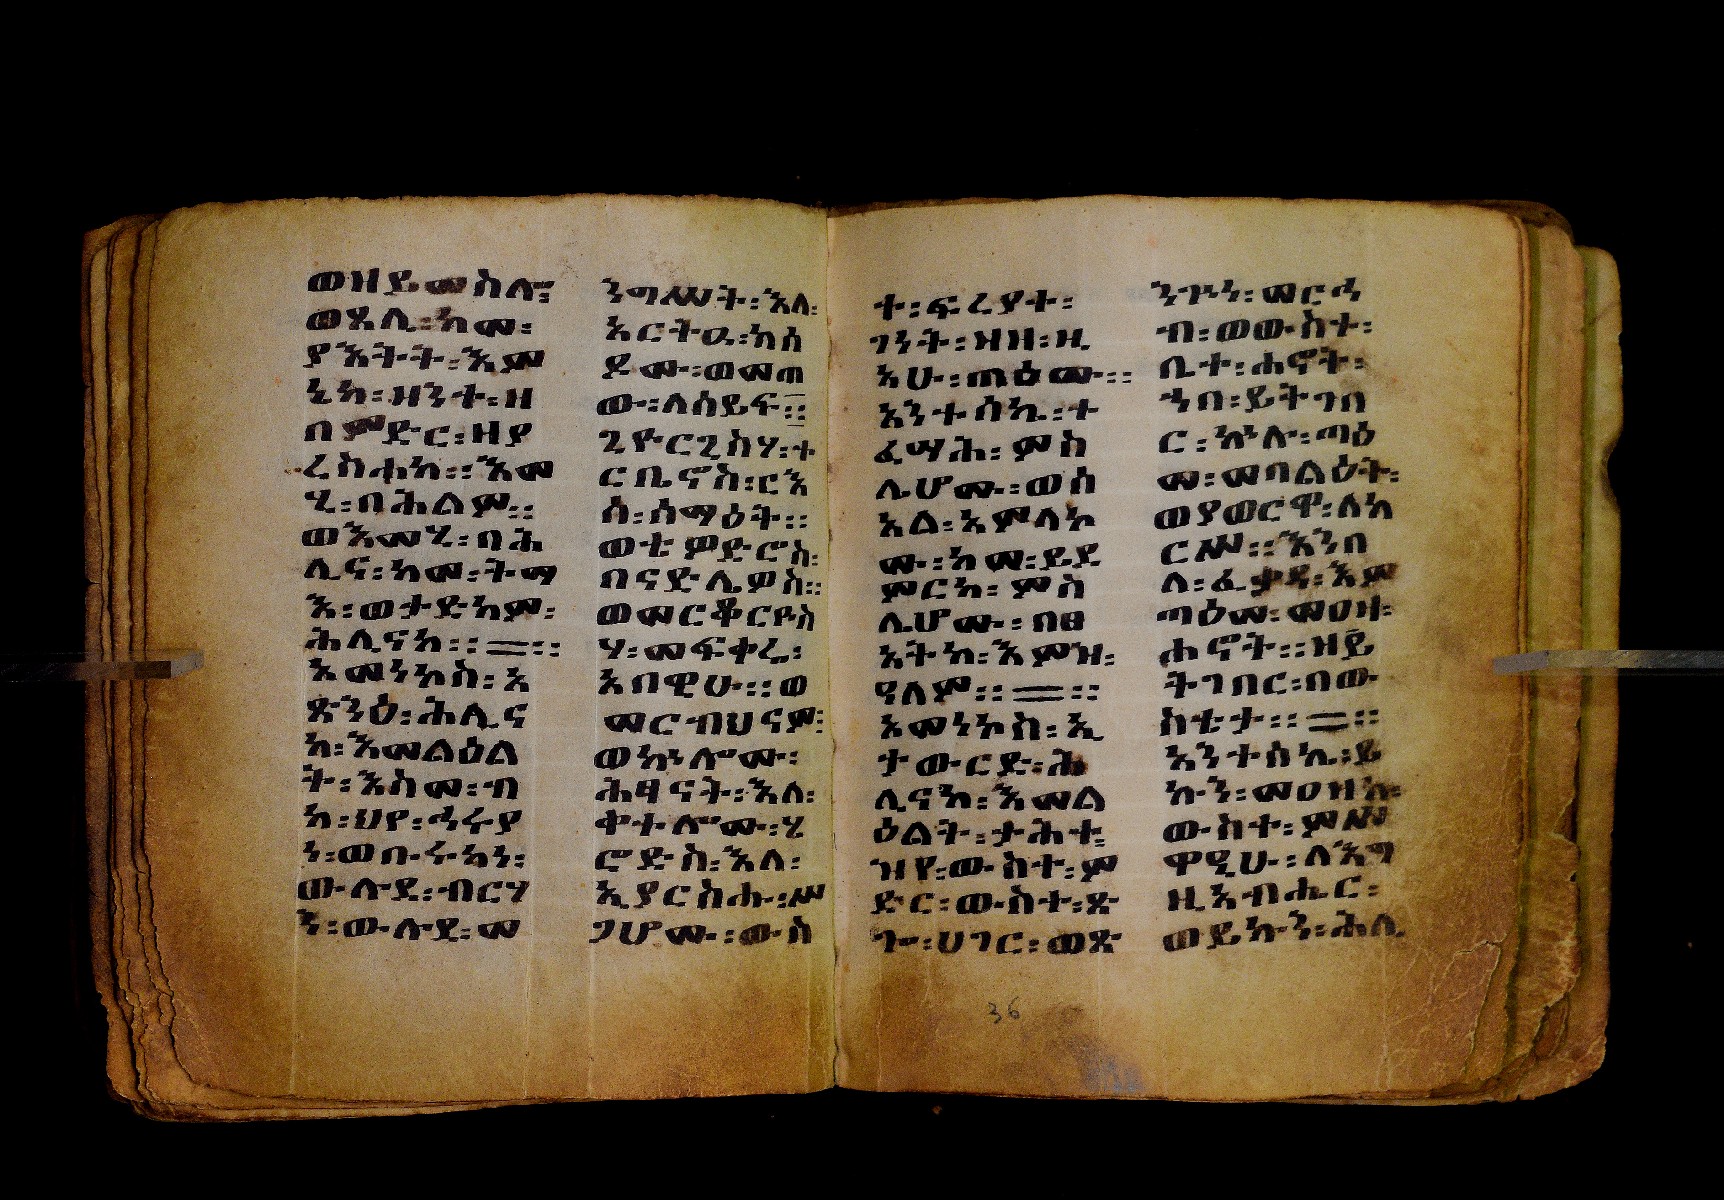 ወዘይመስሎ፤
ወጸሊ፡ከመ፡
ያእትት፡እም
ኔከ፡ዘንተ፡ዘ
በምድር፡ዘያ
ረስሐከ፡፡እመ
ሂ፡በሕልም፡፡
ወእመሂ፡በሕ
ሊና፡ከመ፡ትማ
እ፡ወታድክም፡
ሕሊናከ፡፡=፡፡
እመነኮስ፡አ
ጽንዕ፡ሕሊና
ከ፡እመልዕል
ት፡እስመ፡ብ
ከ፡ህየ፡ሓራያ
ነ፡ወቡሩካነ፡
ውሉደ፡ብርሃ
ን፡ውሉደ፡መ
ንግሥት፡እለ፡
አርትዑ፡ከሰ
ዶሙ፡ወመጠ
ው፡ለሰይፍ፡፡
ጊዮርጊስሃ፡ተ
ርቢኖስ፡ርእ
ሰ፡ሰማዕት፡፡
ወቴዎድሮስ፡
በናድሌዎስ፡፡
ወመርቆርዮስ
ሃ፡መፍቀሬ፡
አበዊሁ፡፡ወ
መርብህናም፡
ወኵሎሙ፡
ሕፃናት፡እለ፡
ቀተሎሙ፡ሂ
ሮድስ፡እለ፡
ኢያርስሑ፡ሥ
ጋሆሙ፡ውስ
ተ፡ፍረያተ፡
ገነት፡ዝዘ፡ዚ
አሁ፡ጠዕሙ፡፡
አንተሰኬ፡ተ
ፈሣሕ፡ምስ
ሌሆሙ፡ወሰ
አል፡አምላኮ
ሙ፡ከመ፡ይደ
ምርከ፡ምስ
ሌሆሙ፡በፀ
አትከ፡እምዝ፡
ዓለም፡፡=፡፡
አመነኮስ፡ኢ
ታውርድ፡ሕ
ሊናከ፡እመል
ዕልት፡ታሕተ፡
ዝየ፡ውስተ፡ም
ድር፡ውስተ፡ጽ
ጌ፡ሀገር፡ወጽ
ንጕነ፡መርዓ
ብ፡ወውስተ፡
ቤተ፡ሐኖት፡
ኀበ፡ይትገበ
ር፡ኵሉ፡ጣዕ
መ፡መባልዕት፡
ወያወርዋ፡ለከ
ርሥ፡፡እንበ
ለ፡ፈቃዳ፡እም
ጣዕመ፡መዐዘ፡
ሐኖት፡፡ዘይ
ትገበር፡በው
ስቴታ፡፡=፡፡
አንተሰኬ፡ይ
ኩን፡መዐዘከ፡
ውስተ፡ምሥ
ዋዒሁ፡ለእግ
ዚአብሔር፡
ወይኩን፡ሕሊ
36